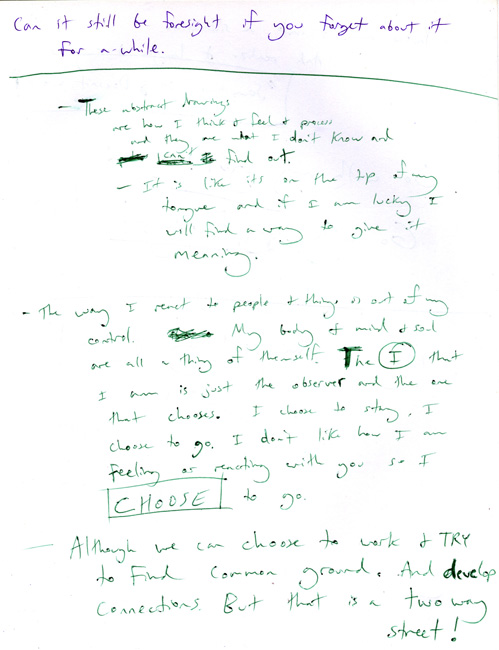 Can it still be foresight if you forget about it
for a-while.
- These abstract drawings
are how I think & feel & process
and they are what I don't know and
can't find out.
- It is like its on the top of my
tongue and if I am lucky I
will find a way to give it
meaning.
- The way I react to people & things is out of my
control. My body & mind & soul
are all a thing of themself. The I that
I am is just the observer and the one
that chooses. I choose to stay, I
choose to go. I don't like how I am
feeling or reacting with you so I
CHOOSE to go.
- Although we can choose to work & TRY
to find common ground. And develop
connections. But that is a two way
street!